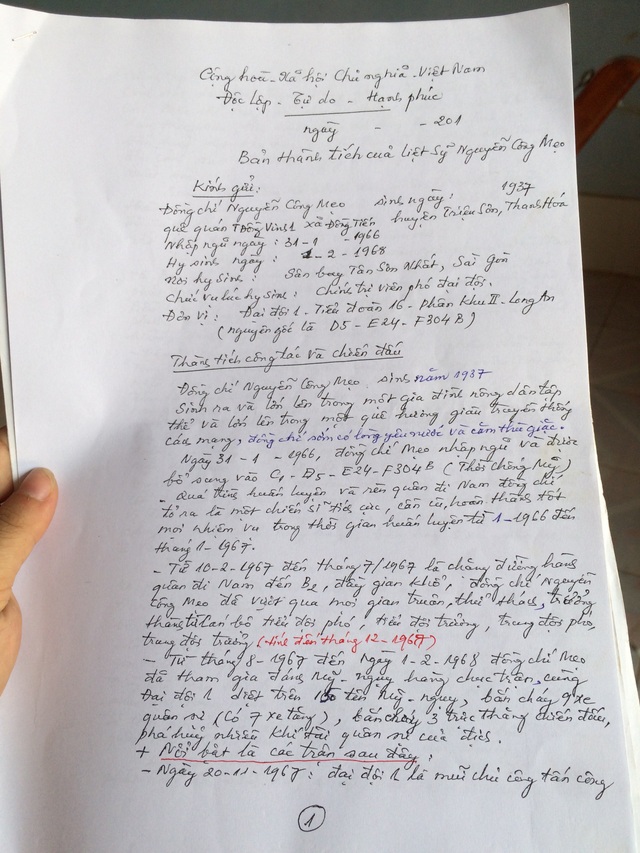 Cộng hoà - Xã hội Chủ nghĩa - Việt Nam
Độc Lập - Tự do - Hạnh phúc
ngày - - 201
Bản thành tích của liệt sỹ Nguyễn Công Mẹo
Kính gửi:
Đồng chí Nguyễn Công Mẹo sinh ngày: 1937
quê quán Thôn Đồng Vinh 1 xã Đồng Tiến huyện Triệu Sơn, Thanh Hóa
Nhập ngũ ngày: 31-1-1966
Hy sinh ngày: 1-2-1968
Nơi hy sinh: Sân bay Tân Sơn Nhất, Sài Gòn
Chức vụ lúc hy sinh: Chính trị viên phó đại đội.
Đơn vị: Đại đội 1 - Tiểu đoàn 16 - Phân khu II - Long An
(nguyên gốc là D5 - E24 - F304B)
Thành tích công tác và chiến đấu
Đồng chí Nguyễn Công Mẹo, sinh năm 1937
Sinh ra và lớn lên trong một gia đình nông dân tập
thể và lớn lên trong một quê hương giàu truyền thống
cách mạng, đồng chí sớm có lòng yêu nước và căm thù giặc.
Ngày 31-1-1966, đồng chí Mẹo nhập ngũ và được
bổ sung vào C1 - D5 - E24 - F304B (Thời chống Mỹ)
- Quá trình huấn luyện và rèn quân đi Nam đồng chí
tỏ ra là một chiến sĩ tích cực, cần cù, hoàn thành tốt
mọi nhiệm vụ trong thời gian huấn luyện từ 1-1966 đến
tháng 1-1967.
- Từ 10-2-1967 đến tháng 7/1967 là chặng đường hành
quân đi Nam đến B2, đầy gian khổ, đồng chí Nguyễn
Công Mẹo đã vượt qua mọi gian truân, thử thách, trưởng
thành từ cán bộ tiểu đội phó, tiểu đội trưởng, trung đội phó,
trung đội trưởng (tính đến tháng 12-1967)
- Từ tháng 8-1967 đến ngày 1-2-1968 đồng chí Mẹo
đã tham gia đánh Mỹ - ngụy hàng chục trận, cùng
Đại đội 1 diệt trên tên Mỹ - ngụy, bắn cháy 9 xe
quân sự (Có 7 xe tăng), bắn cháy 3 trực thăng chiến đấu,
phá huỷ nhiều khí tài quân sự của địch.
+ Nổi bật là các trận sau đây:
- Ngày 20-11-1967: đại đội 1 là mũi chủ công tấn công
1